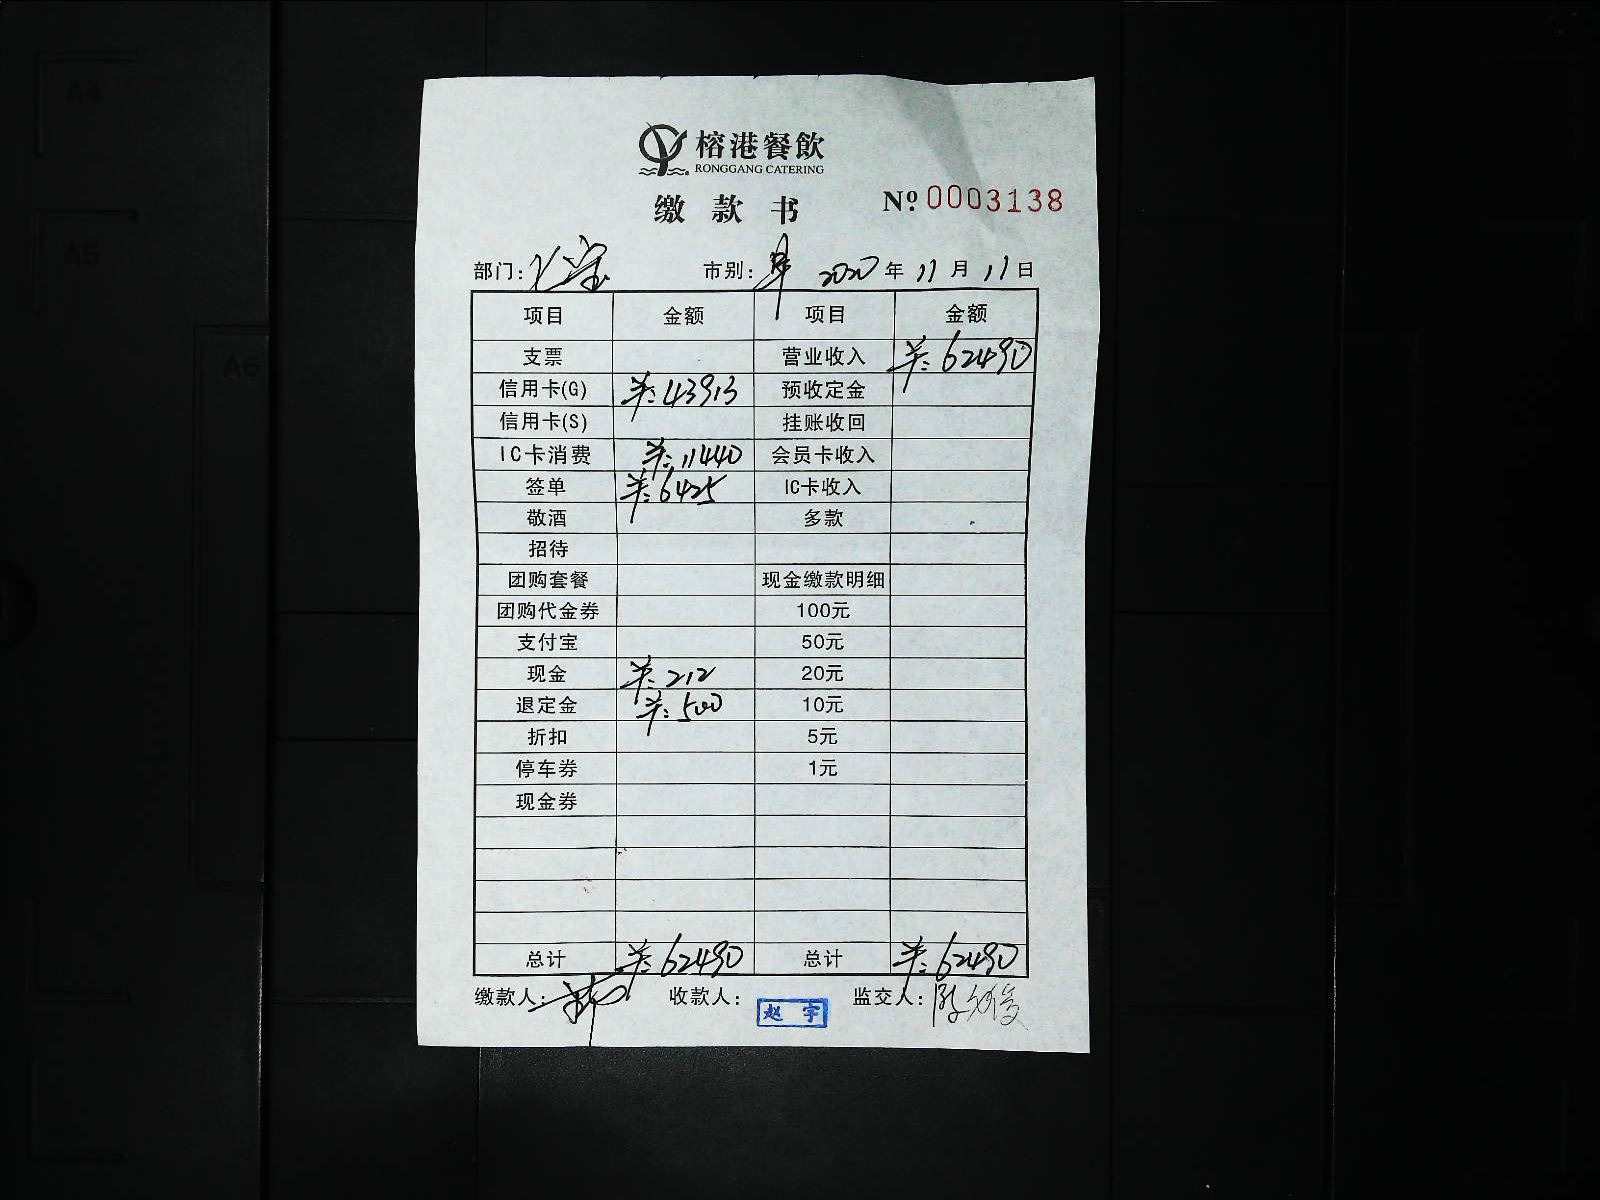 榕港餐飲
RONGGANG CATERING
缴款书 №.0003138
部门: 市别: 2020年11月11日
项目 金额 项目 金额
支票 营业收入 羊:62490
信用卡(G) 羊:43913 预收定金
信用卡(S) 挂账收回
IC卡消费 羊:11440 会员卡收入
签单 羊:6425 IC卡收入
敬酒 多款
招待
团购套餐 现金缴款明细
团购代金券 100元
支付宝 50元
现金 羊:212 20元
退定金 羊:500 10元
折扣 5元
停车券 1元
现金券
总计 羊:62490 总计 羊:62490
缴款人: 收款人: 赵宇 监交人:
A4
A5
A6